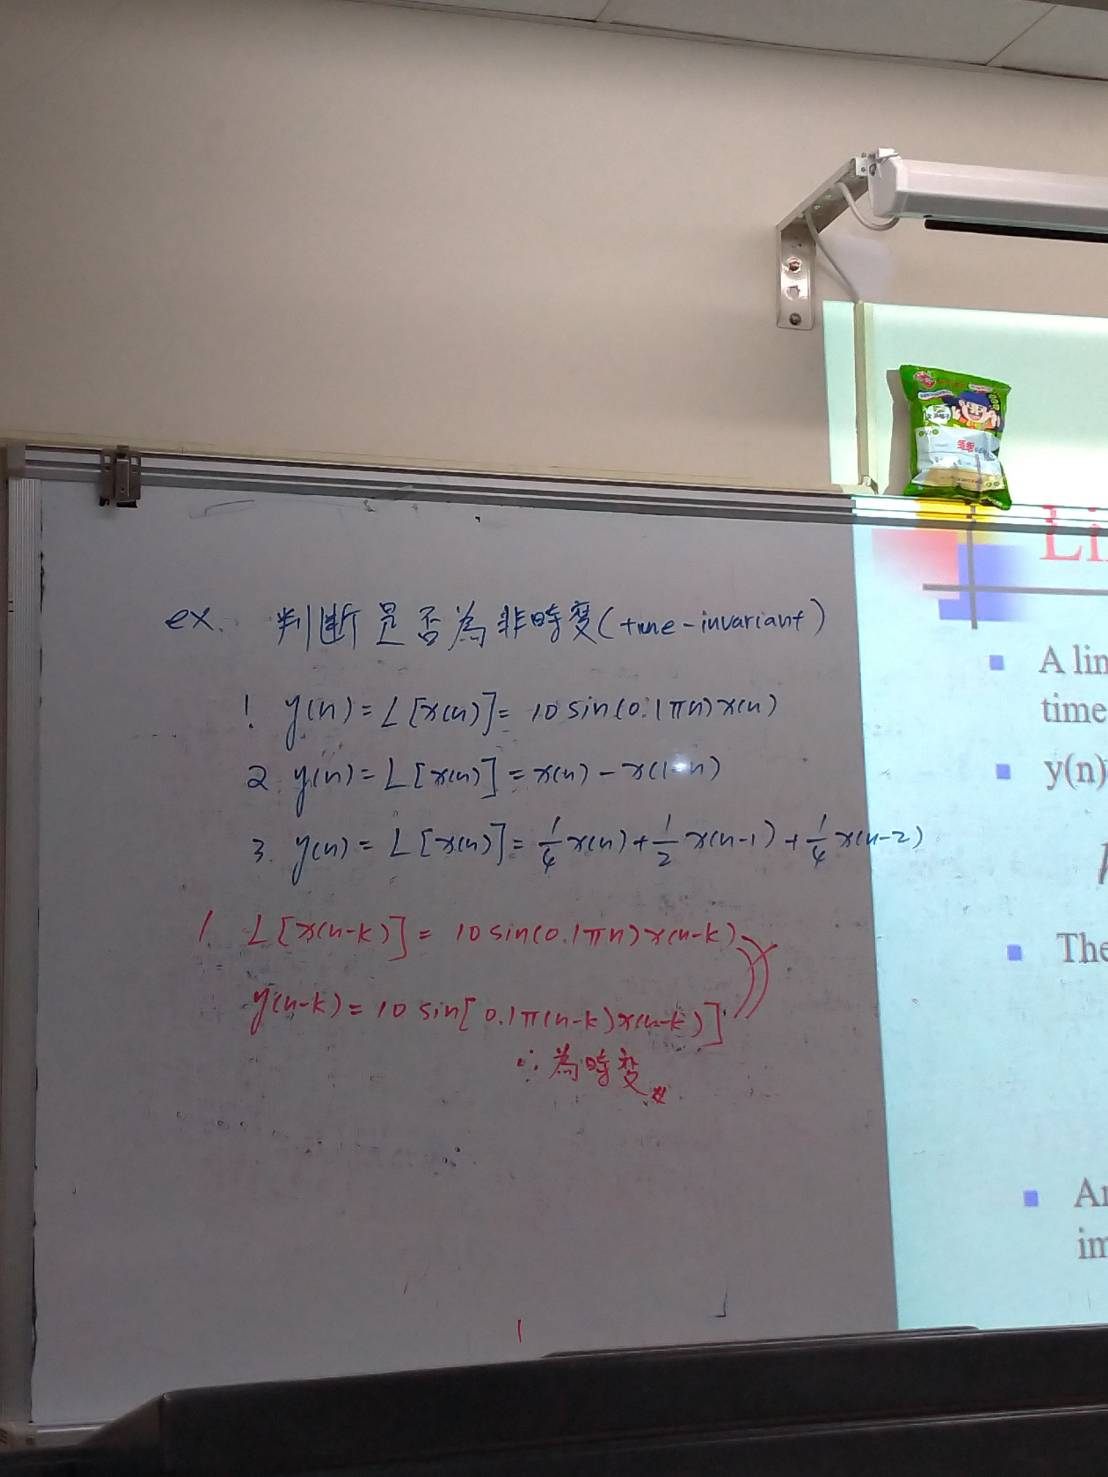 ex. 判断是否為非時變(time-invariant)
1. y(n) = L[x(n)] = 10 sin(0.1πn)x(n)
2. y(n) = L[x(n)] = x(n) - x(1-n)
3. y(n) = L[x(n)] = 1/4 x(n) + 1/2 x(n-1) + 1/4 x(n-2)
1. L[x(n-k)] = 10 sin(0.1πn)x(n-k)
y(n-k) = 10 sin[0.1π(n-k)x(n-k)]
∴ 為時變
Li
A lin
time
y(n)
h
The
An
im